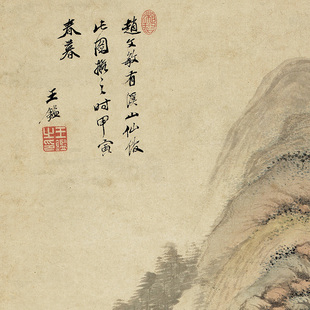 趙文敏有溪山仙館
此圖擬之時甲寅
春暮
王鑑